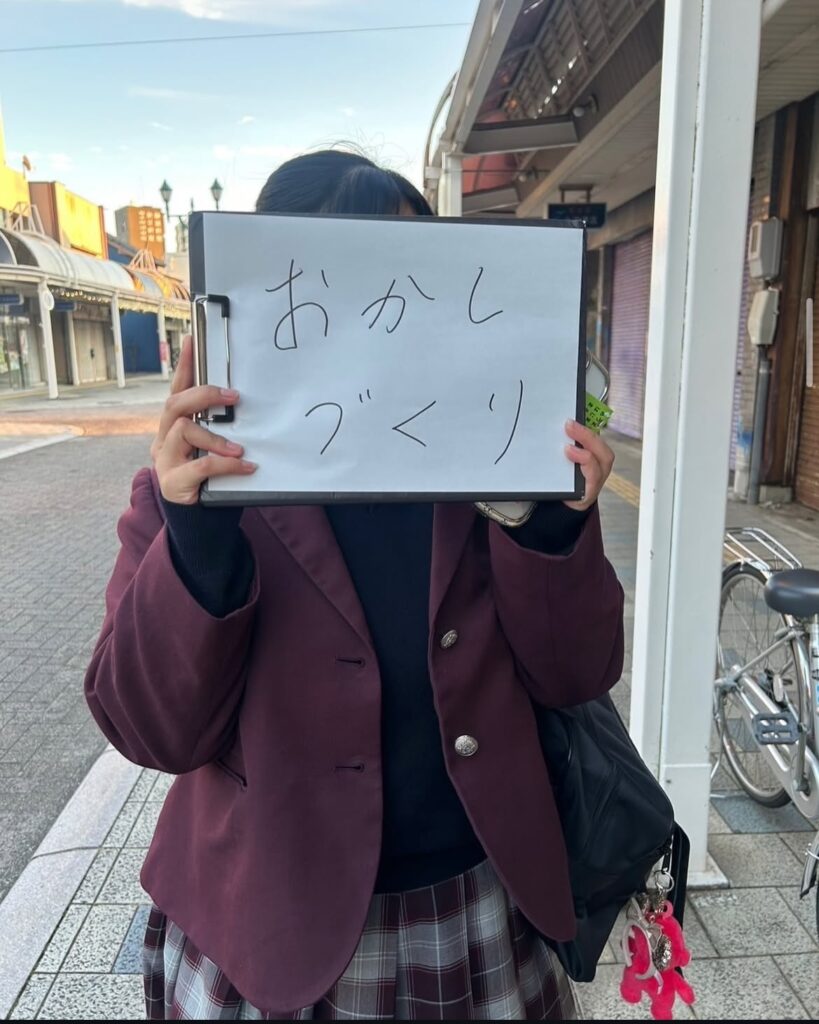 おかし
づくり